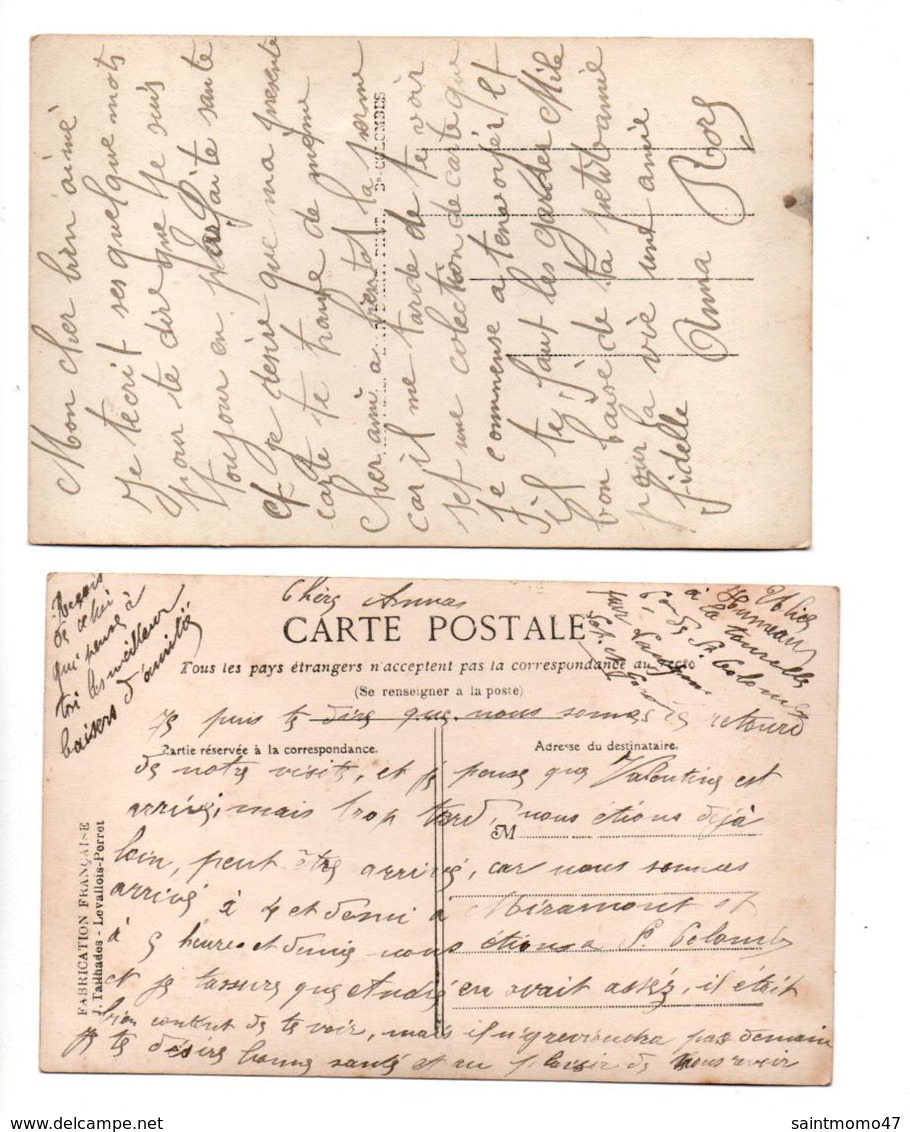 Mon cher bien aimé
Je tecrit ses quelque mots
pour te dire que je suis
toujour en parfaite santé
et je desire que ma presente
carte te trouve de même
cher ami a bientot la forme
car il me tarde de te voir
set une colection de carte que
je commense a tenvoyér et
il te faut les garder Mile
bon baisé de ta petite amie
pour la vie une amie
fidelle Anna Roos
Bs-COLOMBES
Chère Anna
CARTE POSTALE
Tous les pays étrangers n'acceptent pas la correspondance au recto
(Se renseigner a la poste)
Reçois
de celui
qui pense à
toi les meilleur
baisers d'amitié
à la tourelle
par de St Colomb
Je puis te dire que nous somes de retourd
Partie réservée à la correspondance.
Adresse du destinataire.
de notre visite, et je pense que Valentine est
arrivé, mais trop tard, nous étions déjà
M
loin, peut être arrivé, car nous sommes
arrivé à 4 et demi a Miramont et
à 5 heures et demie nous étions a St Colombe
et je tassure que André en avait assez, il était
bien content de te voir, mais il n'y reviendra pas demain
je te désire bonne santé et au plaisir de nous revoir
FABRICATION FRANÇAISE
J. Tailhades - Levallois-Perret
saintmomo47